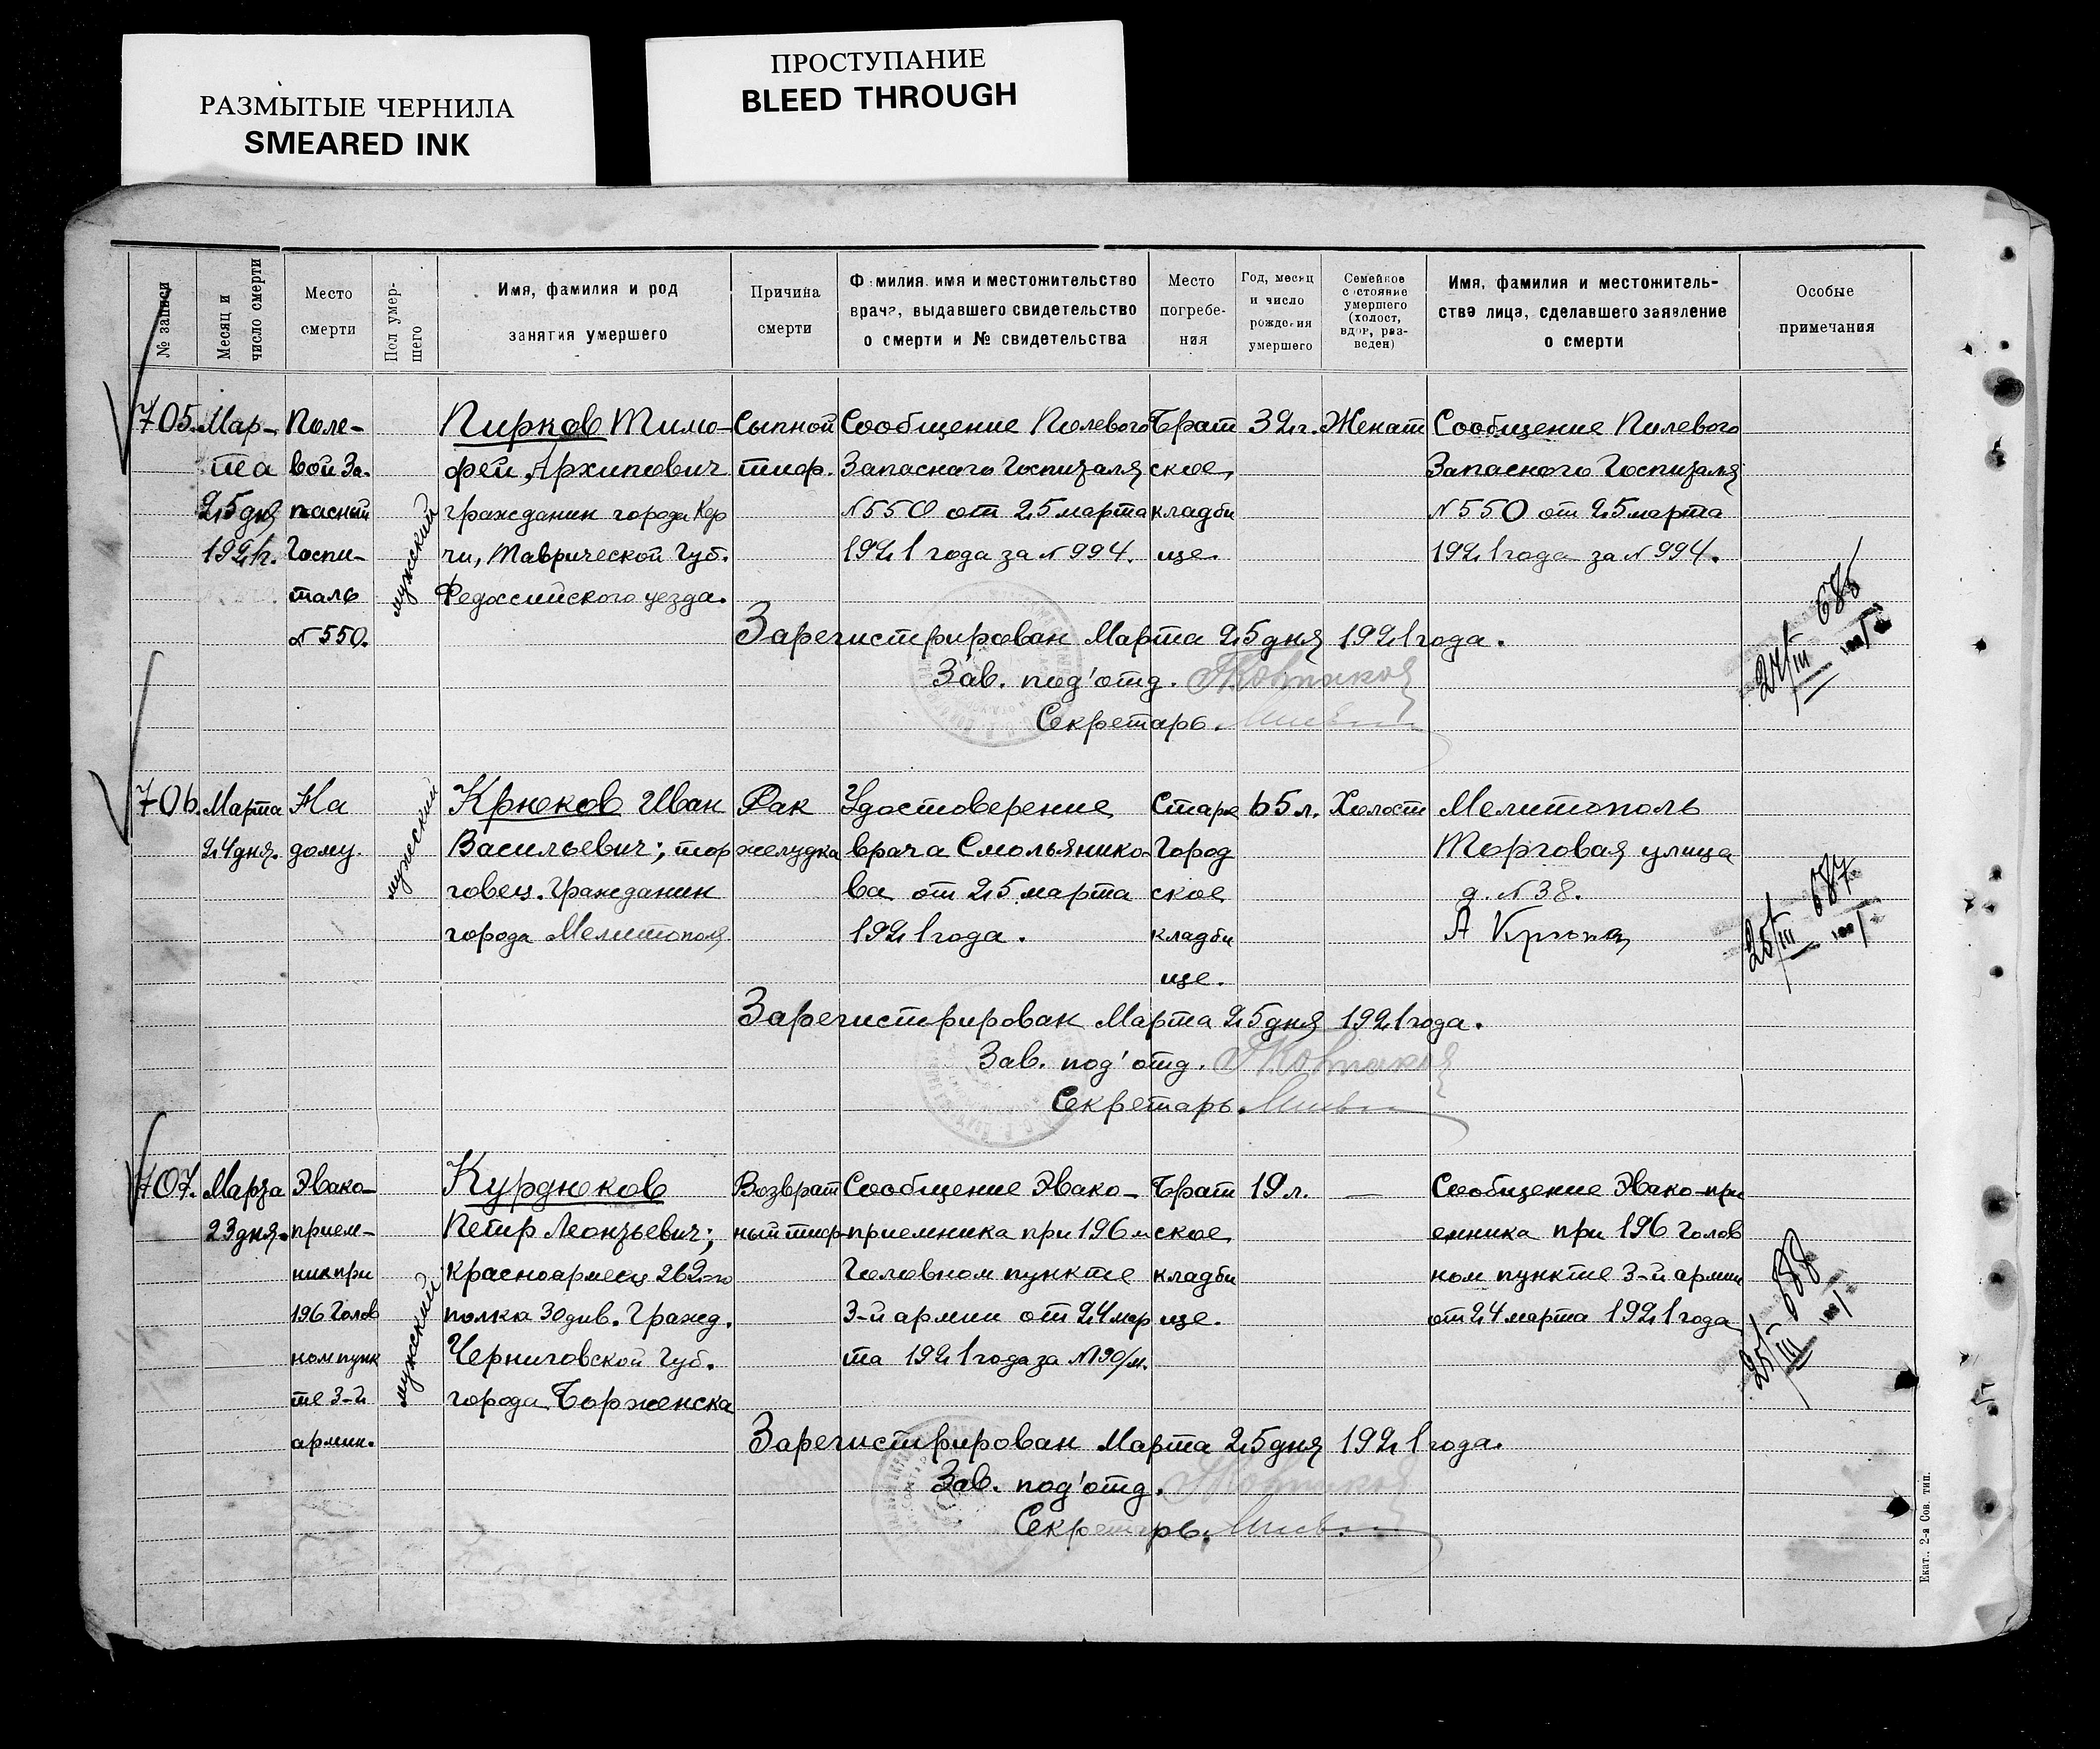 РАЗМЫТЫЕ ЧЕРНИЛА
SMEARED INK
ПРОСТУПАНИЕ
BLEED THROUGH
№ записи
Месяц и
число смерти
Место
смерти
Пол умер-
шего
Имя, фамилия и род
занятия умершего
Причина
смерти
Фамилия, имя и местожительство
врача, выдавшего свидетельство
о смерти и № свидетельства
Место
погребе-
ния
Год, месяц
и число
рождения
умершего
Семейное
состояние
умершего
(холост,
вдов, раз-
веден)
Имя, фамилия и местожитель-
ства лица, сделавшего заявление
о смерти
Особые
примечания
705.
Мар-
та
25 дня
1921г.
Поле-
вой За-
пасный
Госпи-
таль
№ 550.
мужский
Пирков Тимо-
фей, Архипович
гражданин города Кер
чи, Таврической Губ.
Федоссийского уезда.
Сыпной
тиф.
Сообщение Полевого
Запасного Госпиталя
№ 550 от 25 марта
1921 года за № 994.
Брат
ское
кладби
ще.
32 г.
Женат
Сообщение Полевого
Запасного Госпиталя
№ 550 от 25 марта
1921 года за № 994.
685
Зарегистрирован Марта 25 дня 1921 года.
Зав. под'отд.
Секретарь.
706.
Марта
24 дня.
На
дому.
мужский
Крюков Иван
Васильевич; тор
говец. Гражданин
города Мелитополя
Рак
желудка
Удостоверение
врача Смольянико-
ва от 25 марта
1921 года.
Старо
Город
ское
кладби
ще.
65 л.
Холост
Мелитополь
Торговая улица
д. № 38.
А
25/III
687
Зарегистрирован Марта 25 дня 1921 года.
Зав. под'отд.
Секретарь.
707.
Марта
23 дня.
Эвако-
прием-
ник при
196 Голов
ном пунк
те 3-й
армии.
мужский
Курдюков
Петр Леонтьевич;
красноармеец 262го
полка 30 див. Гражд.
Черниговской Губ.
города Борженска
Возврат
ный тиф.
Сообщение Эвако-
приемника при 196 м
Головном пункте
3-й армии от 24 мар
та 1921 года за № 90/м.
Брат
ское
кладби
ще.
19 л.
—
Сообщение Эвако-при
емника при 196 Голов
ном пункте 3-й армии
от 24 марта 1921 года
25/III
688
Зарегистрирован Марта 25 дня 1921 года.
Зав. под'отд.
Секретарь.
Екат.. 2-а Сов. тип.